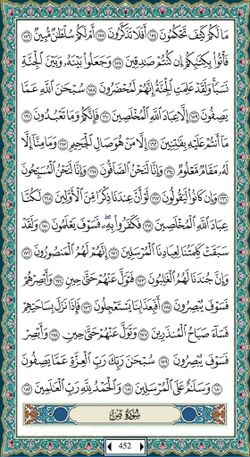 مَا لَكُمْ كَيْفَ تَحْكُمُونَ ١٥٤ أَفَلَا تَذَكَّرُونَ ١٥٥ أَمْ لَكُمْ سُلْطَٰنٌ مُّبِينٌ ١٥٦
فَأْتُوا۟ بِكِتَٰبِكُمْ إِن كُنتُمْ صَٰدِقِينَ ١٥٧ وَجَعَلُوا۟ بَيْنَهُۥ وَبَيْنَ ٱلْجِنَّةِ
نَسَبًا وَلَقَدْ عَلِمَتِ ٱلْجِنَّةُ إِنَّهُمْ لَمُحْضَرُونَ ١٥٨ سُبْحَٰنَ ٱللَّهِ عَمَّا
يَصِفُونَ ١٥٩ إِلَّا عِبَادَ ٱللَّهِ ٱلْمُخْلَصِينَ ١٦٠ فَإِنَّكُمْ وَمَا تَعْبُدُونَ ١٦١
مَآ أَنتُمْ عَلَيْهِ بِفَٰتِنِينَ ١٦٢ إِلَّا مَنْ هُوَ صَالِ ٱلْجَحِيمِ ١٦٣ وَمَا مِنَّآ إِلَّا
لَهُۥ مَقَامٌ مَّعْلُومٌ ١٦٤ وَإِنَّا لَنَحْنُ ٱلصَّآفُّونَ ١٦٥ وَإِنَّا لَنَحْنُ ٱلْمُسَبِّحُونَ ١٦٦
وَإِن كَانُوا۟ لَيَقُولُونَ ١٦٧ لَوْ أَنَّ عِندَنَا ذِكْرًا مِّنَ ٱلْأَوَّلِينَ ١٦٨ لَكُنَّا
عِبَادَ ٱللَّهِ ٱلْمُخْلَصِينَ ١٦٩ فَكَفَرُوا۟ بِهِۦ فَسَوْفَ يَعْلَمُونَ ١٧٠ وَلَقَدْ
سَبَقَتْ كَلِمَتُنَا لِعِبَادِنَا ٱلْمُرْسَلِينَ ١٧١ إِنَّهُمْ لَهُمُ ٱلْمَنصُورُونَ ١٧٢
وَإِنَّ جُندَنَا لَهُمُ ٱلْغَٰلِبُونَ ١٧٣ فَتَوَلَّ عَنْهُمْ حَتَّىٰ حِينٍ ١٧٤ وَأَبْصِرْهُمْ
فَسَوْفَ يُبْصِرُونَ ١٧٥ أَفَبِعَذَابِنَا يَسْتَعْجِلُونَ ١٧٦ فَإِذَا نَزَلَ بِسَاحَتِهِمْ
فَسَآءَ صَبَاحُ ٱلْمُنذَرِينَ ١٧٧ وَتَوَلَّ عَنْهُمْ حَتَّىٰ حِينٍ ١٧٨ وَأَبْصِرْ
فَسَوْفَ يُبْصِرُونَ ١٧٩ سُبْحَٰنَ رَبِّكَ رَبِّ ٱلْعِزَّةِ عَمَّا يَصِفُونَ ١٨٠
وَسَلَٰمٌ عَلَى ٱلْمُرْسَلِينَ ١٨١ وَٱلْحَمْدُ لِلَّهِ رَبِّ ٱلْعَٰلَمِينَ ١٨٢
سُورَةُ ص
452